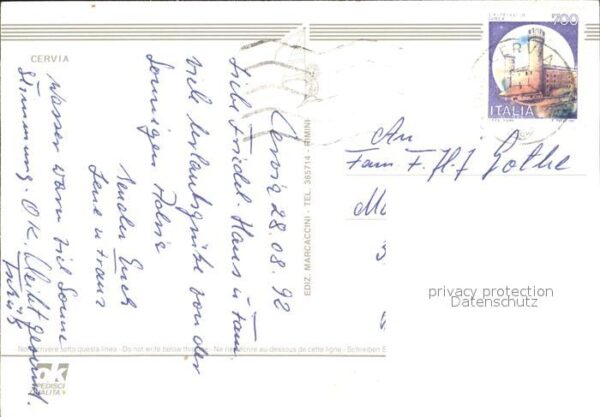 CERVIA
Cervia 28.08.92
Liebe Friedel. Hans u Fam.
viele Urlaubsgrüße von der
sonnigen Adria
senden Euch
Lene u Franz
Wasser warm viel Sonne
Stimmung. O.K. Bleibt gesund.
Tschüß
EDIZ. MARCACCINI - TEL. 365714 - RIMINI
700
ITALIA
An
Fam F. H. J Gothe
privacy protection
Datenschutz
Non scrivere sotto questa linea - Do not write below this line - Ne rien écrire au-dessous de cette ligne - Schreiben
ok
SPEDISCI
QUALITA'